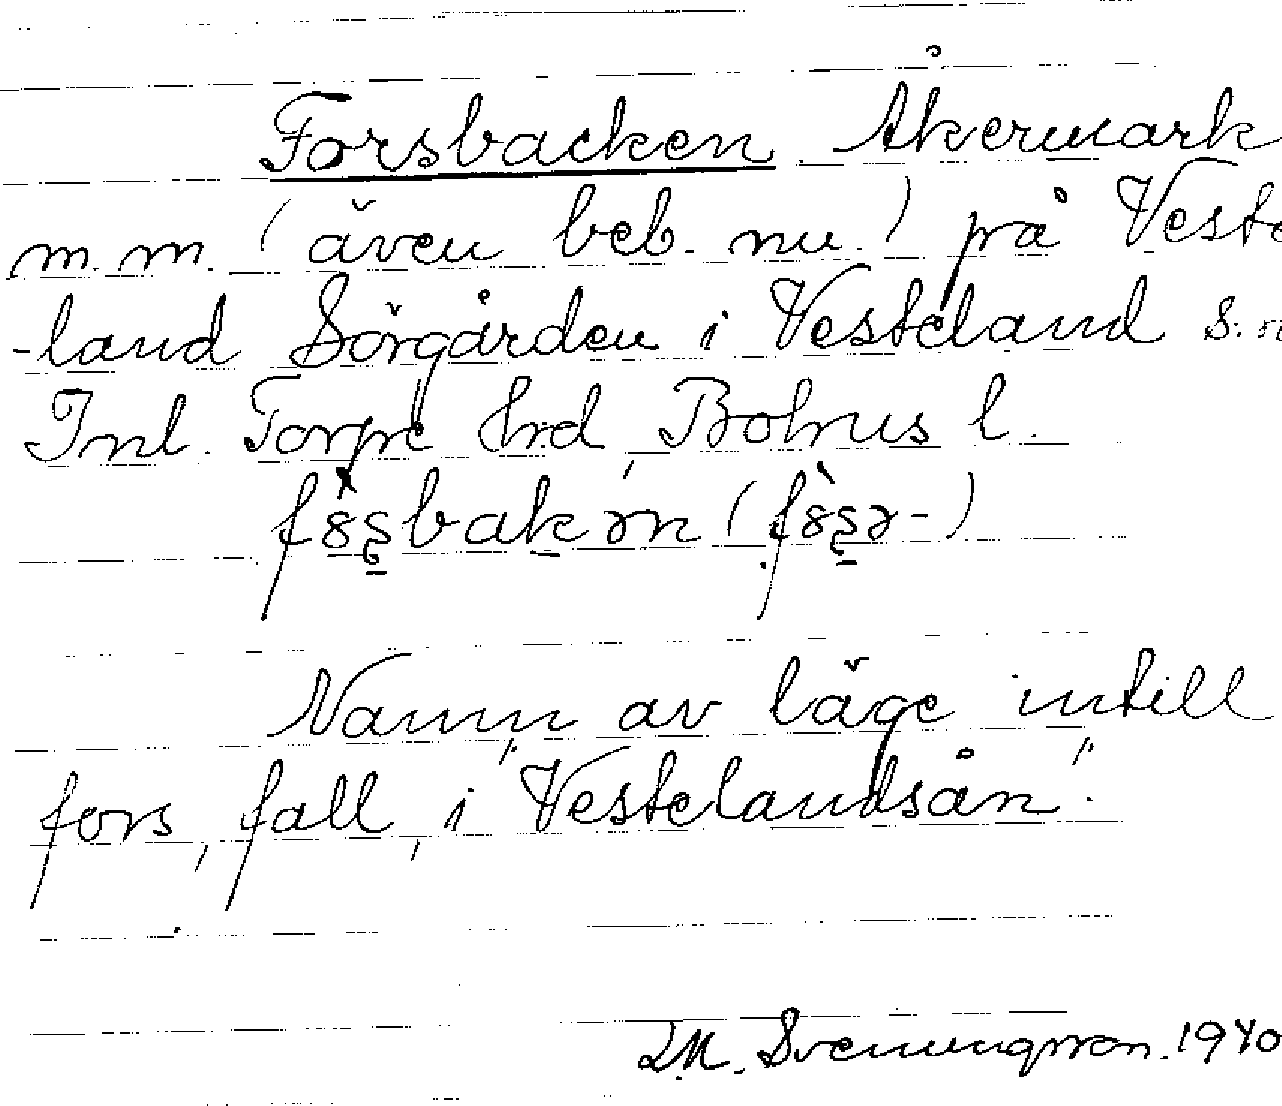 Forsbacken Åkermark
m.m. (även beb. nu.) på Veste
-land Sörgården i Vesteland s.n
Inl. Torpe Hrd, Bohus l.
fɞ̀ʂbakən (fɞ̀ʂə-)
Namn av läge intill
fors, fall, i "Vestelandsån".
D.M. Svenungsson. 1940